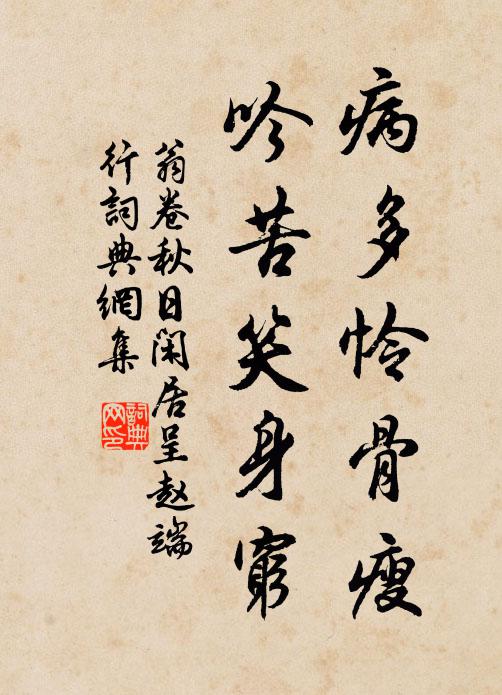 病多怜骨瘦
吟苦笑身窮
翁卷秋日閑居呈赵端
行詞典網集
詞典网印